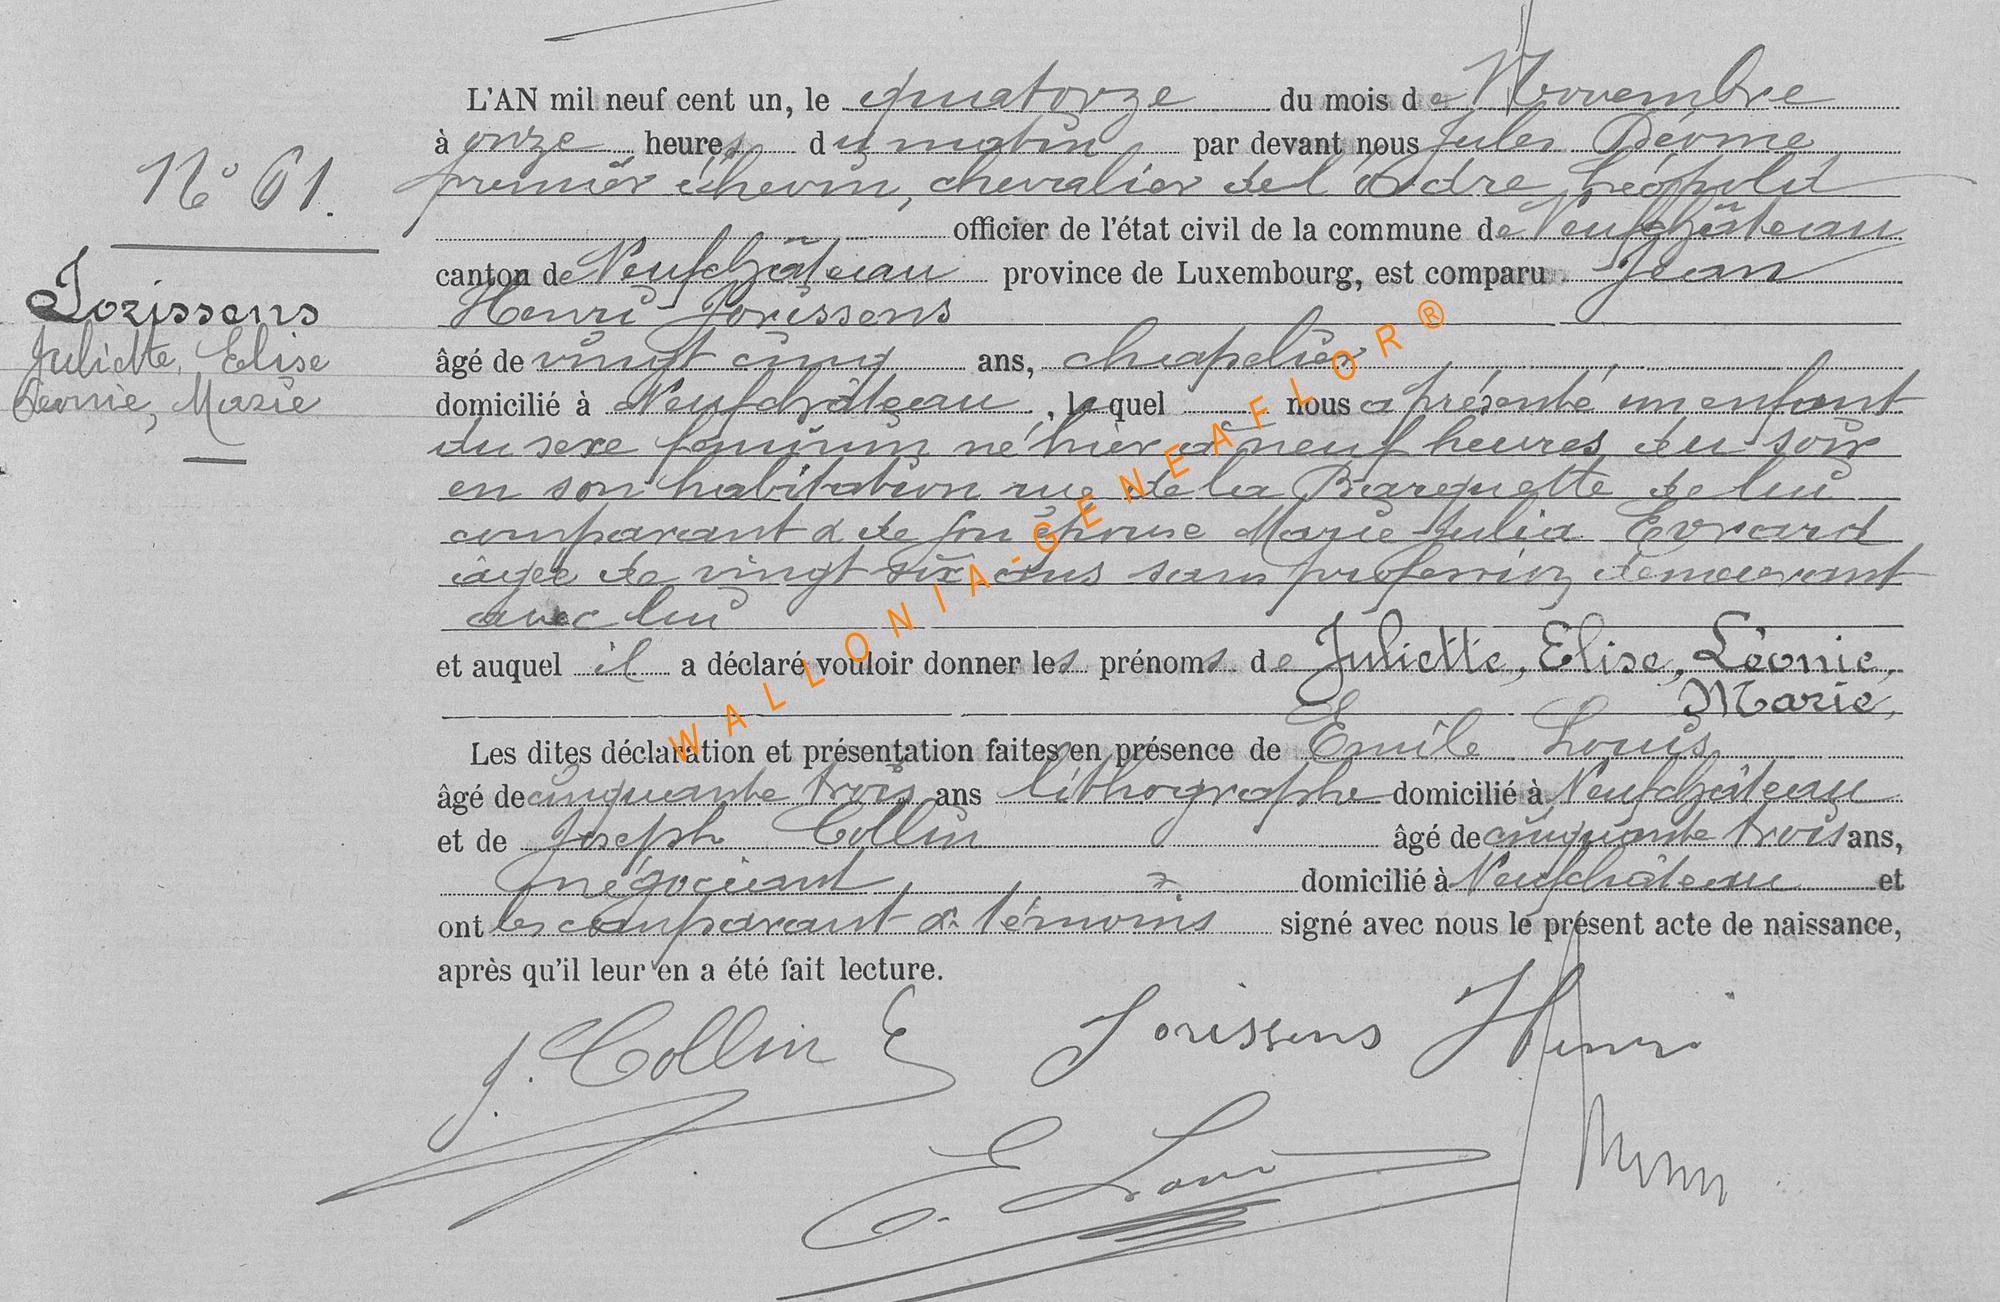 L'AN mil neuf cent un, le quatorze du mois de Novembre
à onze heures du matin par devant nous Jules
premier échevin, chevalier de l'Ordre Léopold
officier de l'état civil de la commune de Neufchâteau
canton de Neufchâteau province de Luxembourg, est comparu Jean
Henri Jorissens
âgé de vingt cinq ans, chapelier
domicilié à Neufchâteau, lequel nous a présenté un enfant
du sexe féminin né hier à neuf heures du soir
en son habitation rue de la Barquette de lui
comparant & de son épouse Marie Julia Evrard
âgée de vingt six ans sans profession demeurant
avec lui
et auquel il a déclaré vouloir donner les prénoms de Juliette, Elise, Léonie,
Marie,
Les dites déclaration et présentation faites en présence de Emile Louis
âgé de cinquante trois ans lithographe domicilié à Neufchâteau
et de Joseph Collin âgé de cinquante trois ans,
négociant, domicilié à Neufchâteau et
ont les comparant & témoins signé avec nous le présent acte de naissance,
après qu'il leur en a été fait lecture.
N° 61.
Jorissens
Juliette, Elise
Léonie, Marie
J. Collin E
Jorissens Henri
E. Louis
WALLONIA-GENEAFLOR®